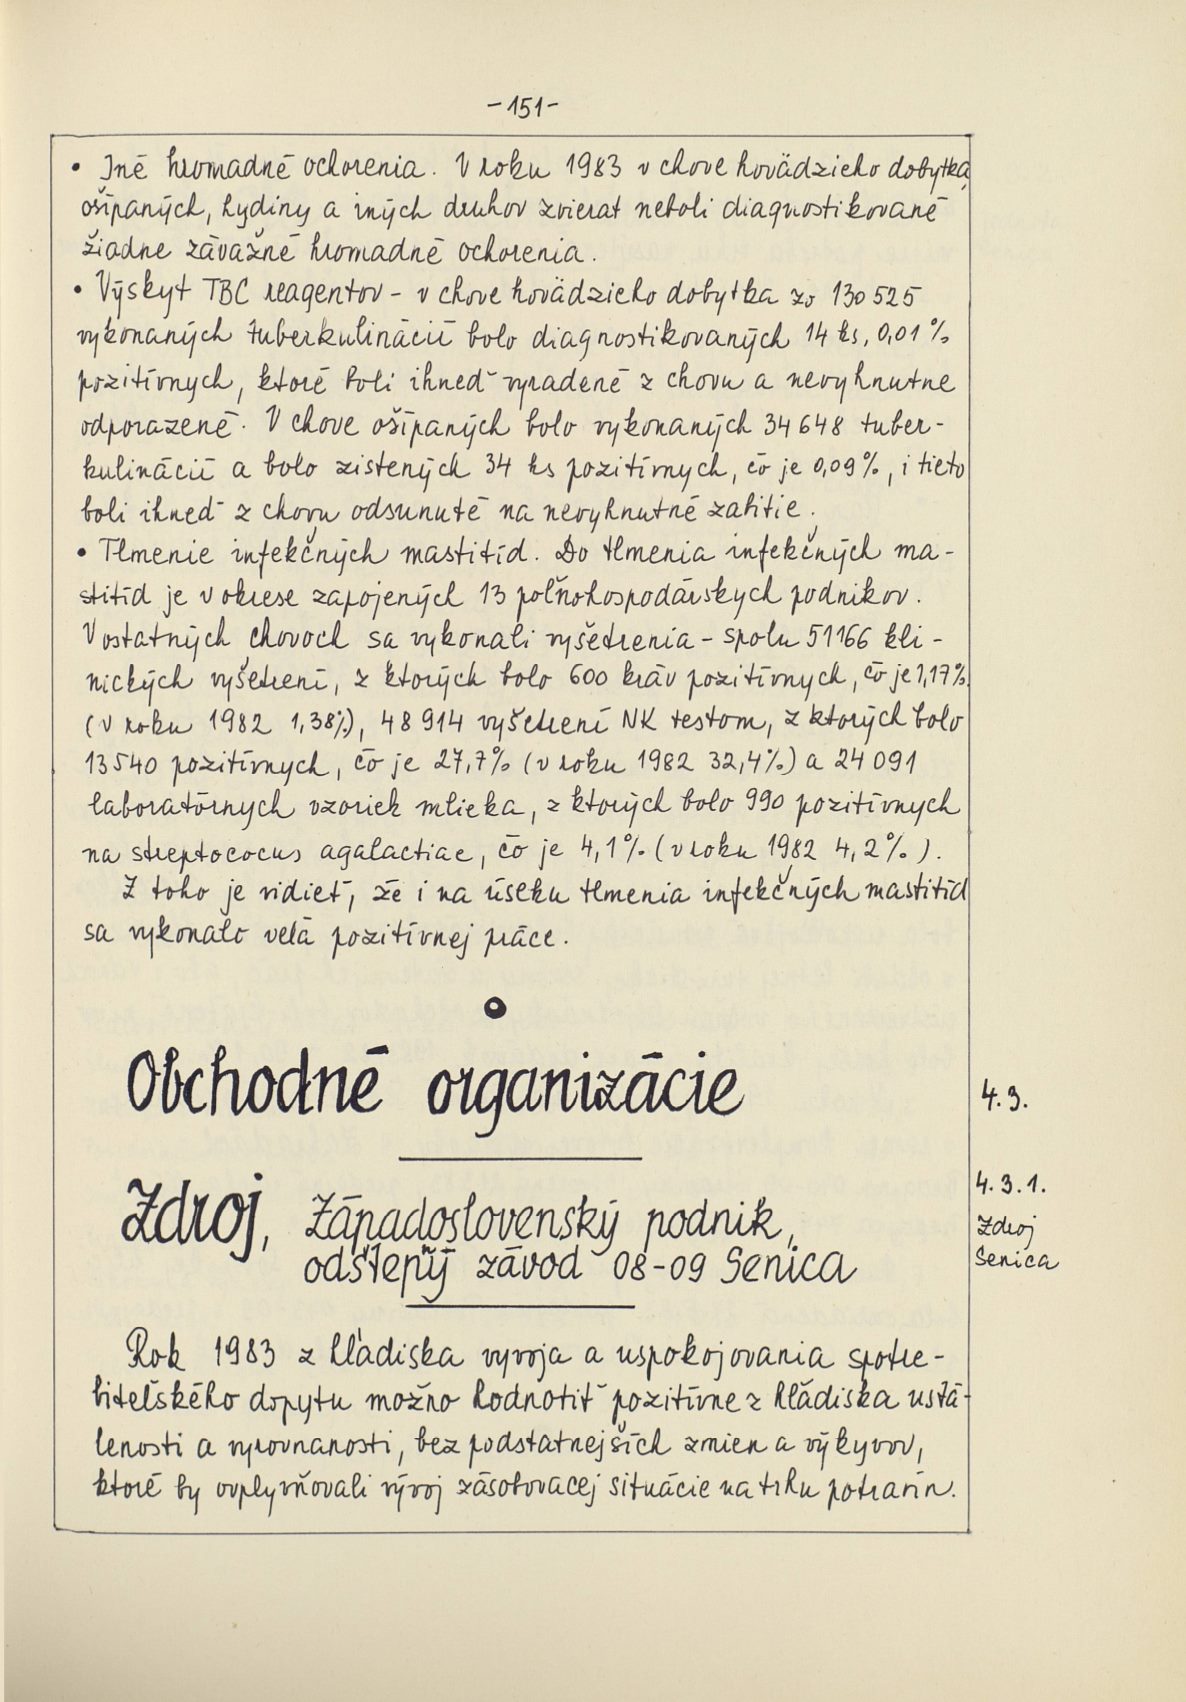 -151-
• Iné hromadné ochorenia. V roku 1983 v chove hovädzieho dobytka,
ošípaných, hydiny a iných druhov zvierat neboli diagnostikované
žiadne závažné hromadné ochorenia.
• Výskyt TBC reagentov - v chove hovädzieho dobytka zo 130 525
vykonaných tuberkulinácií bolo diagnostikovaných 14 ks, 0,01 %
pozitívnych, ktoré boli ihneď vyradené z chovu a nevyhnutne
odporazené. V chove ošípaných bolo vykonaných 34 648 tuber-
kulinácií a bolo zistených 34 ks pozitívnych, čo je 0,09 %, i tieto
boli ihneď z chovu odsunuté na nevyhnutné zabitie.
• Tlmenie infekčných mastitíd. Do tlmenia infekčných ma-
stitíd je v okrese zapojených 13 poľnohospodárskych podnikov.
V ostatných chovoch sa vykonali vyšetrenia - spolu 51166 kli-
nických vyšetrení, z ktorých bolo 600 kráv pozitívnych, čo je 1,17%.
(v roku 1982 1,38%), 48 914 vyšetrení NK testom, z ktorých bolo
13 540 pozitívnych, čo je 27,7% (v roku 1982 32,4%) a 24 091
laboratórnych vzoriek mlieka, z ktorých bolo 990 pozitívnych
na streptococus agalactiae, čo je 4,1% (v roku 1982 4,2%).
Z toho je vidieť, že i na úseku tlmenia infekčných mastitíd
sa vykonalo veľa pozitívnej práce.
Obchodné organizácie
4.3.
Zdroj, Západoslovenský podnik,
odštepný závod 08-09 Senica
4.3.1.
Zdroj
Senica
Rok 1983 z hľadiska vyvoja a uspokojovania spotre-
biteľského dopytu možno hodnotiť pozitívne z hľadiska ustá-
lenosti a vyrovnanosti, bez podstatnejších zmien a výkyvov,
ktoré by ovplyvňovali vývoj zásobovacej situácie na trhu potravín.